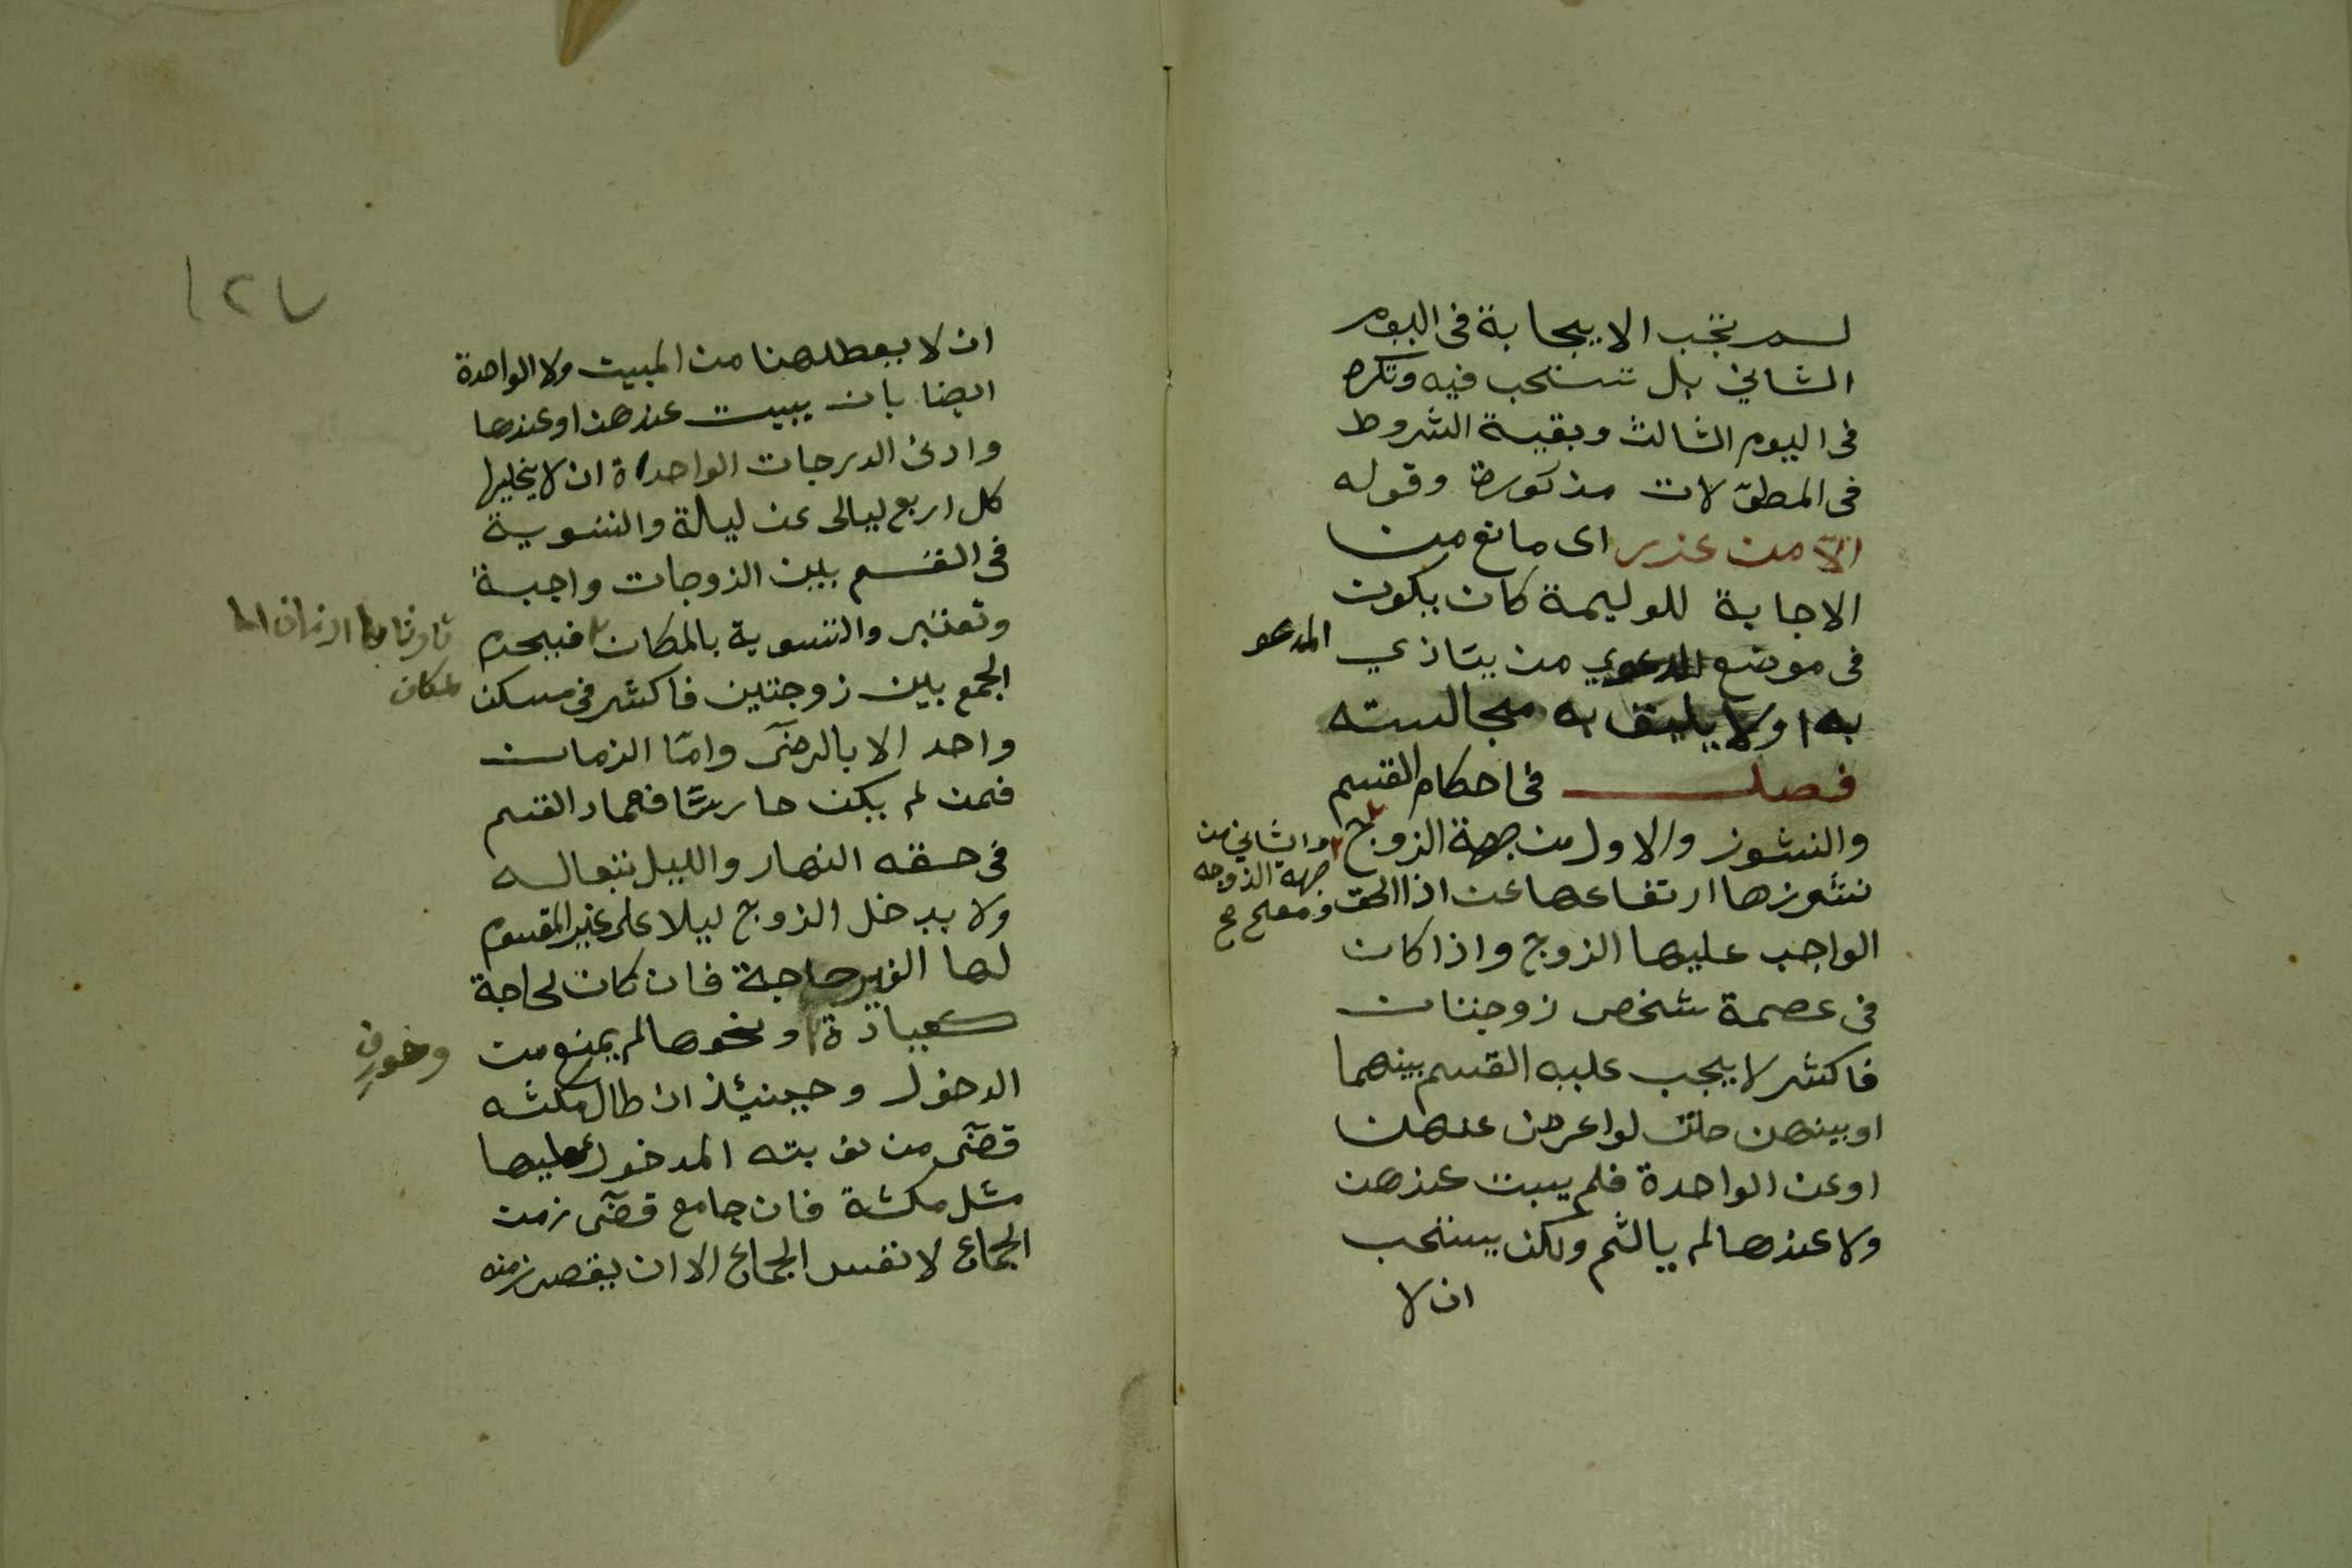 لم تجب الايجابة فى اليوم
الثاني بل تستحب فيه وتكره
فى اليوم الثالث وبقية الشروط
فى المطولات مذكورة وقوله
الا من عذر اى مانع من
الاجابة للوليمة كان يكون
فى موضع الدعوي من يتاذي المدعو
به او لا يليق به مجالسته
فصل فى احكام القسم
والنشوز والاول من جهة الزوج والثاني من
جهة الزوجه
نشوزها ارتفاعها عن اذا الحق ومعلى صح
الواجب عليها الزوج واذا كان
فى عصمة شخص زوجتان
فاكثر لا يجب عليه القسم بينهما
او بينهن حتى لو اعرض عنهن
او عن الواحدة فلم يبت عندهن
ولا عندها لم ياثم ولكن يستحب
ان لا
١٢٧
ان لا يعطلهنا من المبيت ولا الواحدة
ايضا بان يبيت عندهن او عندها
وادنى الدرجات الواحداة ان لا يخليها
كل اربع ليالى عن ليلة والتسوية
فى القسم بين الزوجات واجبة
وتعتبر والتسوية بالمكان فيحرم
الجمع بين زوجتين فاكثر فى مسكن
واحد الا بالرضى وامّا الزمان
فمن لم يكن حارسًا فعماد القسم
فى حقه النهار والليل تبعا له
ولا يدخل الزوج ليلا على غير المقسوم
لها الغير حاجة فان كان لحاجة
كعيادة ونحوها لم يمنع من
الدخول وحينئذ ان طال مكثه
قضى من نوبته المدخول عليها
مثل مكثة فان جامع قضى زمن
الجماع لا نفس الجماع الا ان يقصر زمنه